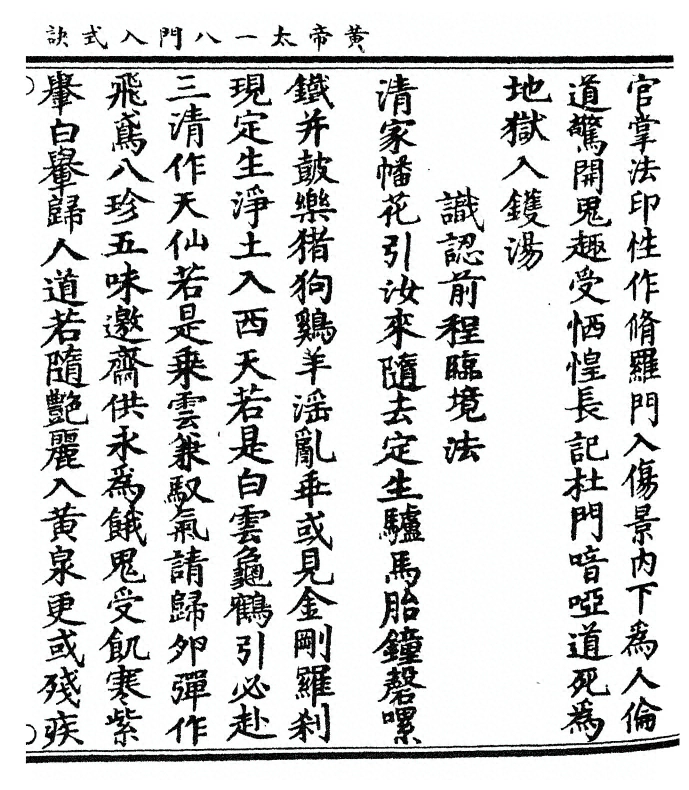 黃帝太一八門入式訣
官掌法印性作脩羅門入傷景內下爲人倫
道驚開鬼趣受恓惶長記杜門喑啞道死爲
地獄入鑊湯
識認前程臨境法
清家幡花引汝來隨去定生驢馬胎鐘磬螺
鐵并鼓樂猪狗鷄羊滛亂乖或見金剛羅刹
現定生淨土入西天若是白雲龜鶴引必赴
三清作天仙若是乘雲兼馭氣請歸卯彈作
飛鸞八珍五味邀齋供永爲餓鬼受飢寒紫
轝白轝歸人道若隨艷麗入黃泉更或殘疾